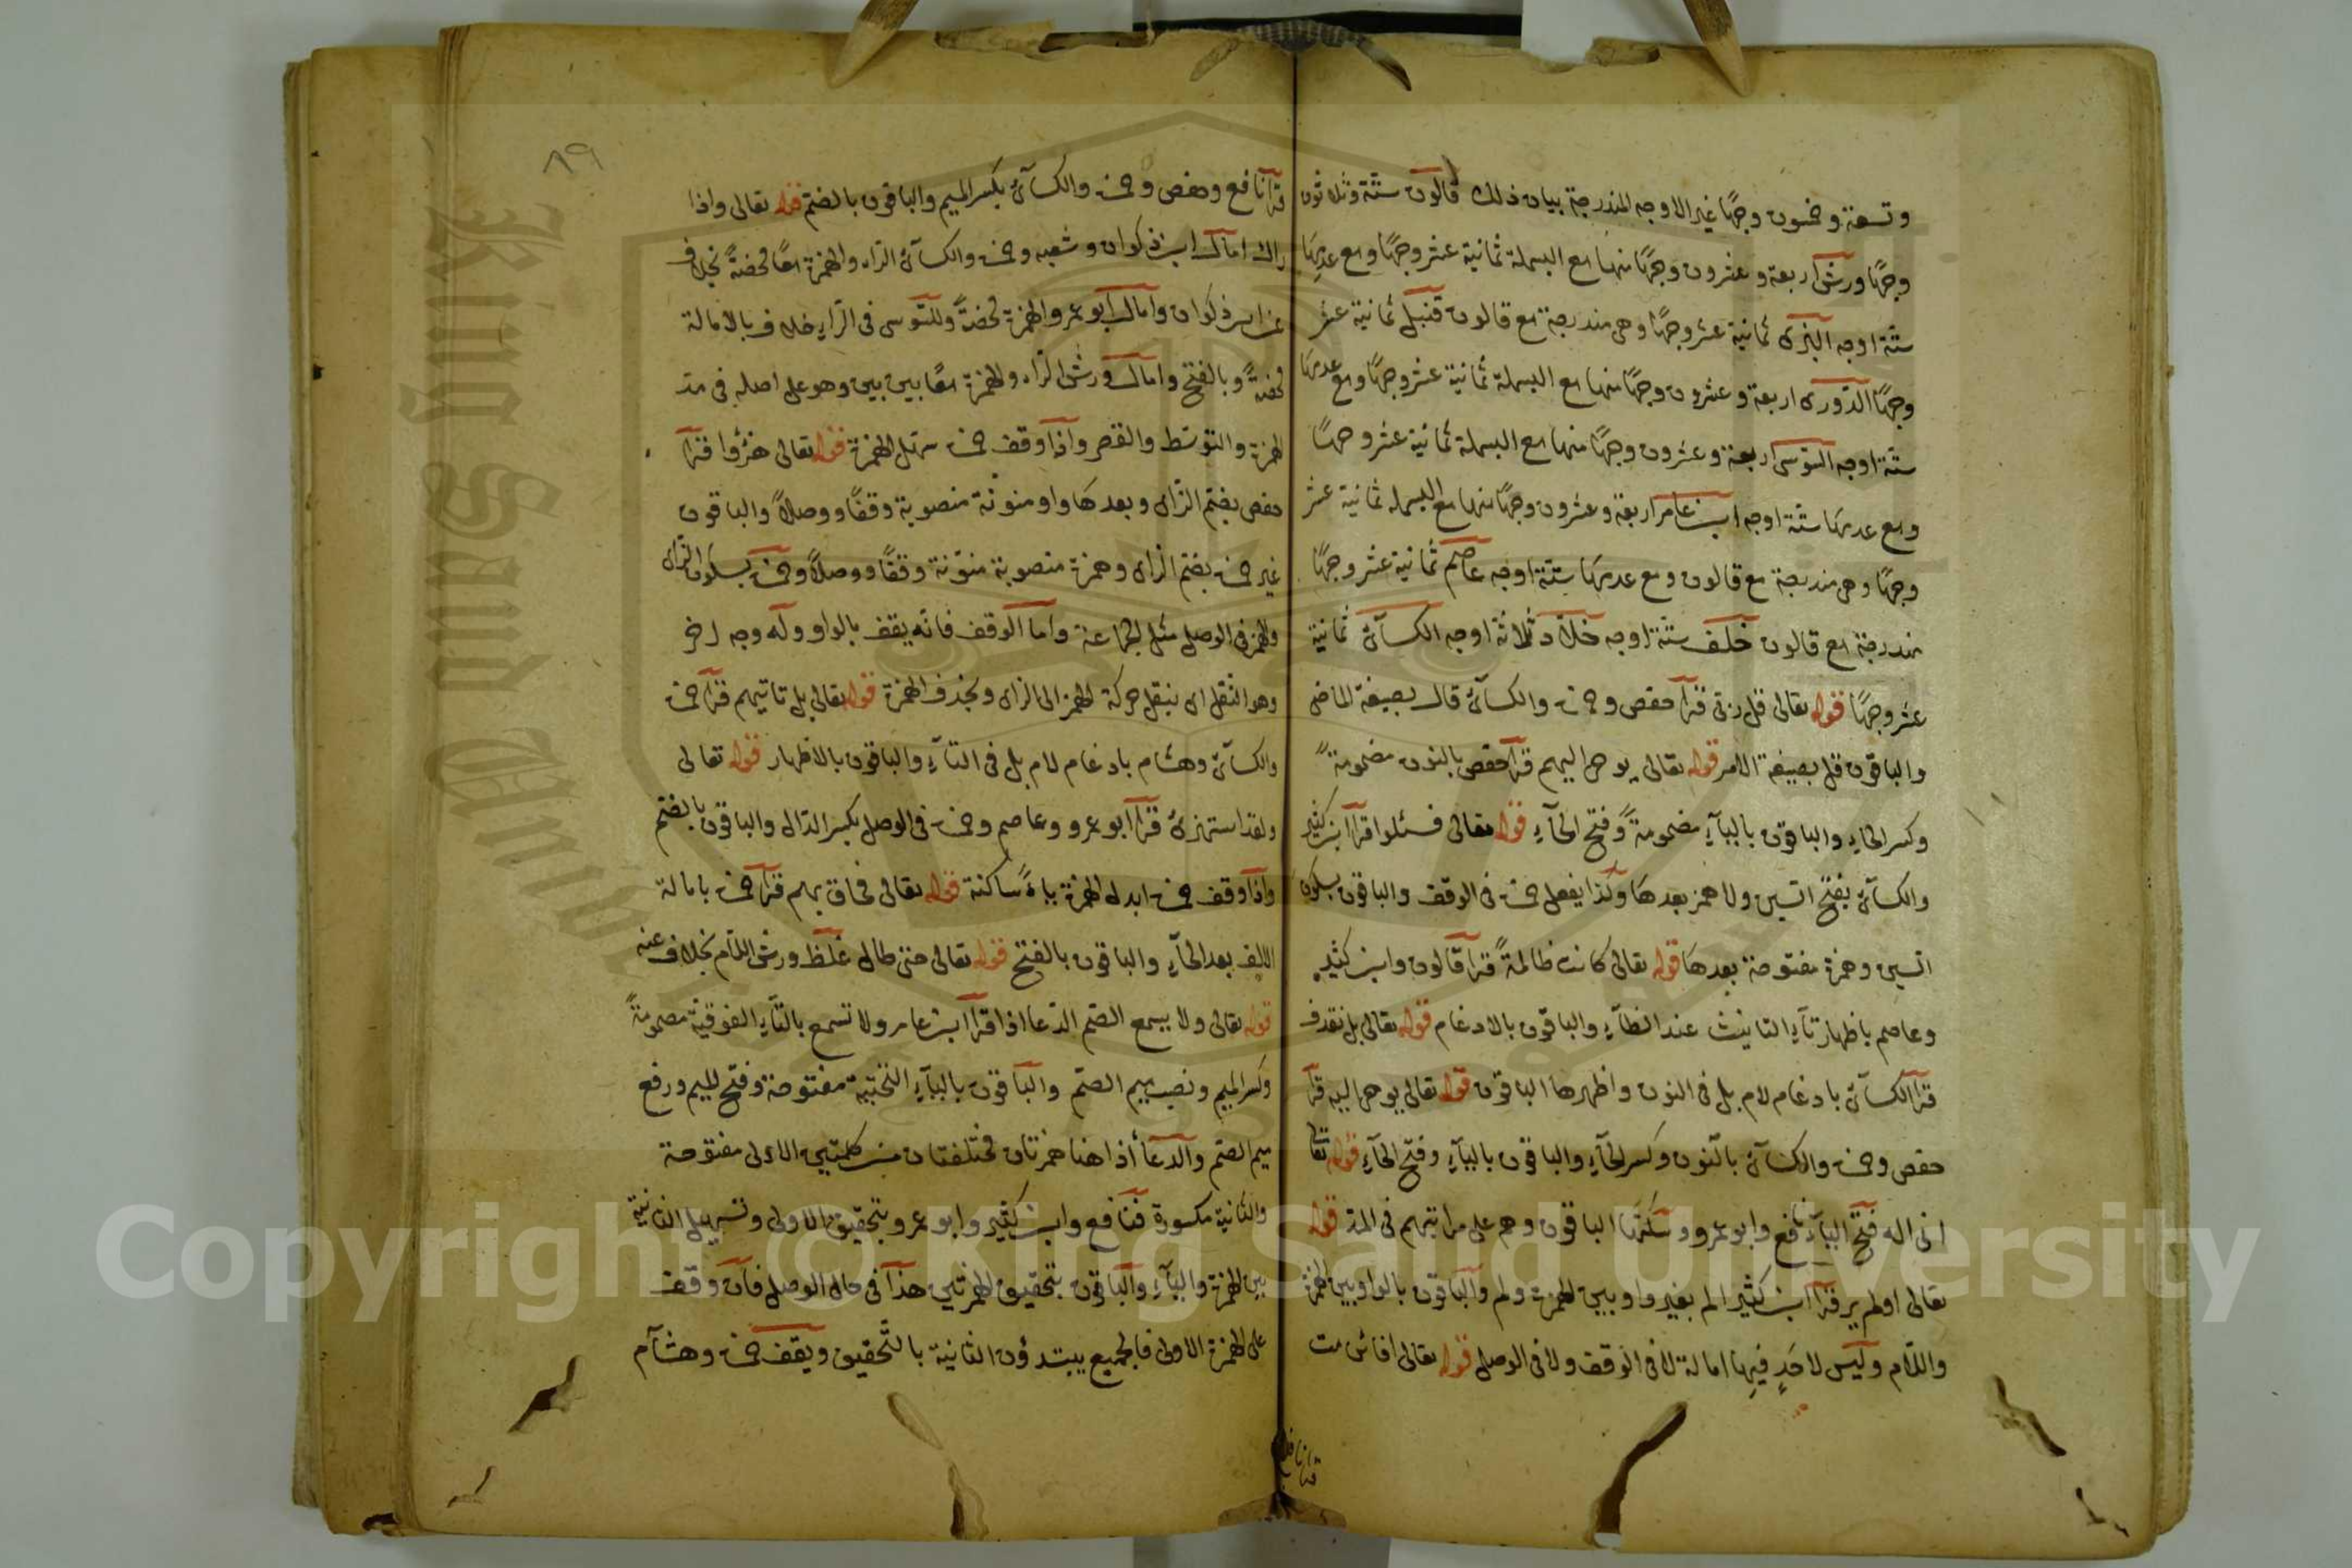 وتسعة وخمسون وجهًا غير الاوجه المندرجة بيان ذلك قالون ستة وثلاثون
وجهًا ورش اربعة وعشرون وجهًا منها مع البسملة ثمانية عشر وجهًا ومع عدمها
ستة اوجه البزى ثمانية عشر وجهًا وهى مندرجة مع قالون قنبل ثمانية عشر
وجهًا الدورى اربعة وعشرون وجهًا منها مع البسملة ثمانية عشر وجهًا ومع عدمها
ستة اوجه السوسى اربعة وعشرون وجهًا منها مع البسملة ثمانية عشر وجهًا
ومع عدمها ستة اوجه ابن عامر اربعة وعشرون وجهًا منها مع البسملة ثمانية عشر
وجهًا وهى مندرجة مع قالون ومع عدمها ستة اوجه عاصم ثمانية عشر وجهًا
مندرجة مع قالون خلف ستة اوجه خلاد ثلاثة اوجه الكسآئ ثمانية
عشر وجهًا قوله تعالى قل ربى قرآ حفص وحمزة والكسآئ قال بصيغة الماضى
والباقون قل بصيغة الامر قوله تعالى يوحى اليهم قرآ حفص بالنون مضمومةً
وكسر الحاء والباقون باليآء مضمومةً وفتح الحآء قوله تعالى فسئلوا قرآ ابن كثير
والكسآئ بفتح السين ولا همز بعدها وكذا يفعل حمزة فى الوقف والباقون بسكون
السين وهمزة مفتوحة بعدها قوله تعالى كانت ظالمةً قرآ قالون وابن كثير
وعاصم باظهار تآء التانيث عند الظآء والباقون بالادغام قوله تعالى بل نقذف
قرآ الكسآئ بادغام لام بل فى النون واظهرها الباقون قوله تعالى يوحى اليه قرآ
حفص وحمزة والكسآئ بالنون وكسر الحآء والباقون باليآء وفتح الحآء قوله تعالى
انى اله فتح اليآء نافع وابو عمرو وسكنها الباقون وهم على مراتبهم فى المد قوله
تعالى اولم ير قرآ ابن كثير الم بغير واو بين الهمزة ولم والباقون بالواو بين الهمزة
واللام وليس لاحدٍ فيها امالة لا فى الوقف ولا فى الوصل قوله تعالى افائن مت
قرآ نافع
٨٩
قرآ نافع وحفص وحمزة والكسآئ بكسر الميم والباقون بالضم قوله تعالى واذا
راك امال ابن ذكوان وشعبه وحمزة والكسآئ الرآء والهمزة معًا محضةً بخلاف
عن ابن ذكوان وامال ابو عمرو الهمزة محضةً وللسوسى فى الرآء خلاف بالامالة
محضةً وبالفتح وامال ورش الرآء والهمزة معًا بين بين وهو على اصله فى مد
الهمزة والتوسط والقصر واذا وقف حمزة سهل الهمزة قوله تعالى هزؤا قرآ
حفص بضم الزاى وبعدها واو منونة منصوبة وقفًا ووصلاً والباقون
غير حمزة بضم الزاى وهمزة منصوبة منونة وقفًا ووصلاً وحمزة بسكون الزاى
والهمز فى الوصل مثل الجماعة واما الوقف فانه يقف بالواو وله وجه اخر
وهو النقل اى ينقل حركة الهمز الى الزاى ويحذف الهمزة قوله تعالى بل تاتيهم قرآ حمزة
والكسآئ وهشام بادغام لام بل فى التآء والباقون بالاظهار قوله تعالى
ولقد استهزئ قرآ ابو عمرو وعاصم وحمزة فى الوصل بكسر الدال والباقون بالضم
واذا وقف حمزة ابدل الهمزة ياءً ساكنة قوله تعالى فحاق بهم قرآ حمزة بامالة
الالف بعد الحآء والباقون بالفتح قوله تعالى حتى طال غلظ ورش اللام بخلاف عنه
قوله تعالى ولا يسمع الصم الدعا اذا قرآ ابن عامر ولا تسمع بالتآء الفوقية مضمومةً
وكسر الميم ونصب ميم الصم والباقون باليآء التحتية مفتوحة وفتح الميم ورفع
ميم الصم والدعآ أذا هنا همزتان مختلفتان من كلمتين الاولى مفتوحة
والثانية مكسورة فنافع وابن كثير وابو عمرو بتحقيق الاولى وتسهيل الثانية
بين الهمزة واليآء والباقون بتحقيق الهمزتين هذا فى حال الوصل فان وقف
على الهمزة الاولى فالجميع يبتدؤن الثانية بالتحقيق ويقف حمزة وهشام
Copyright © King Saud University
King Saud University